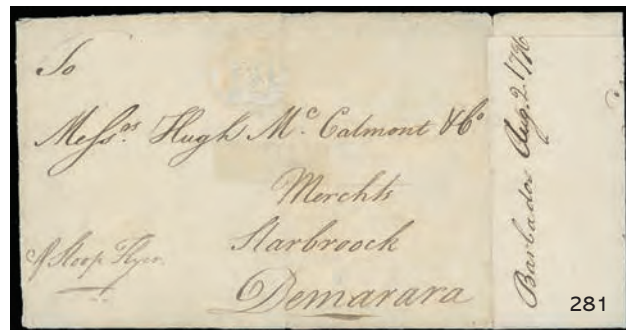 To
Messrs. Hugh McCalmont & Co
Merchts
Starbroock
Demarara
P Sloop Flyer.
Barbados Aug. 2. 1796
281